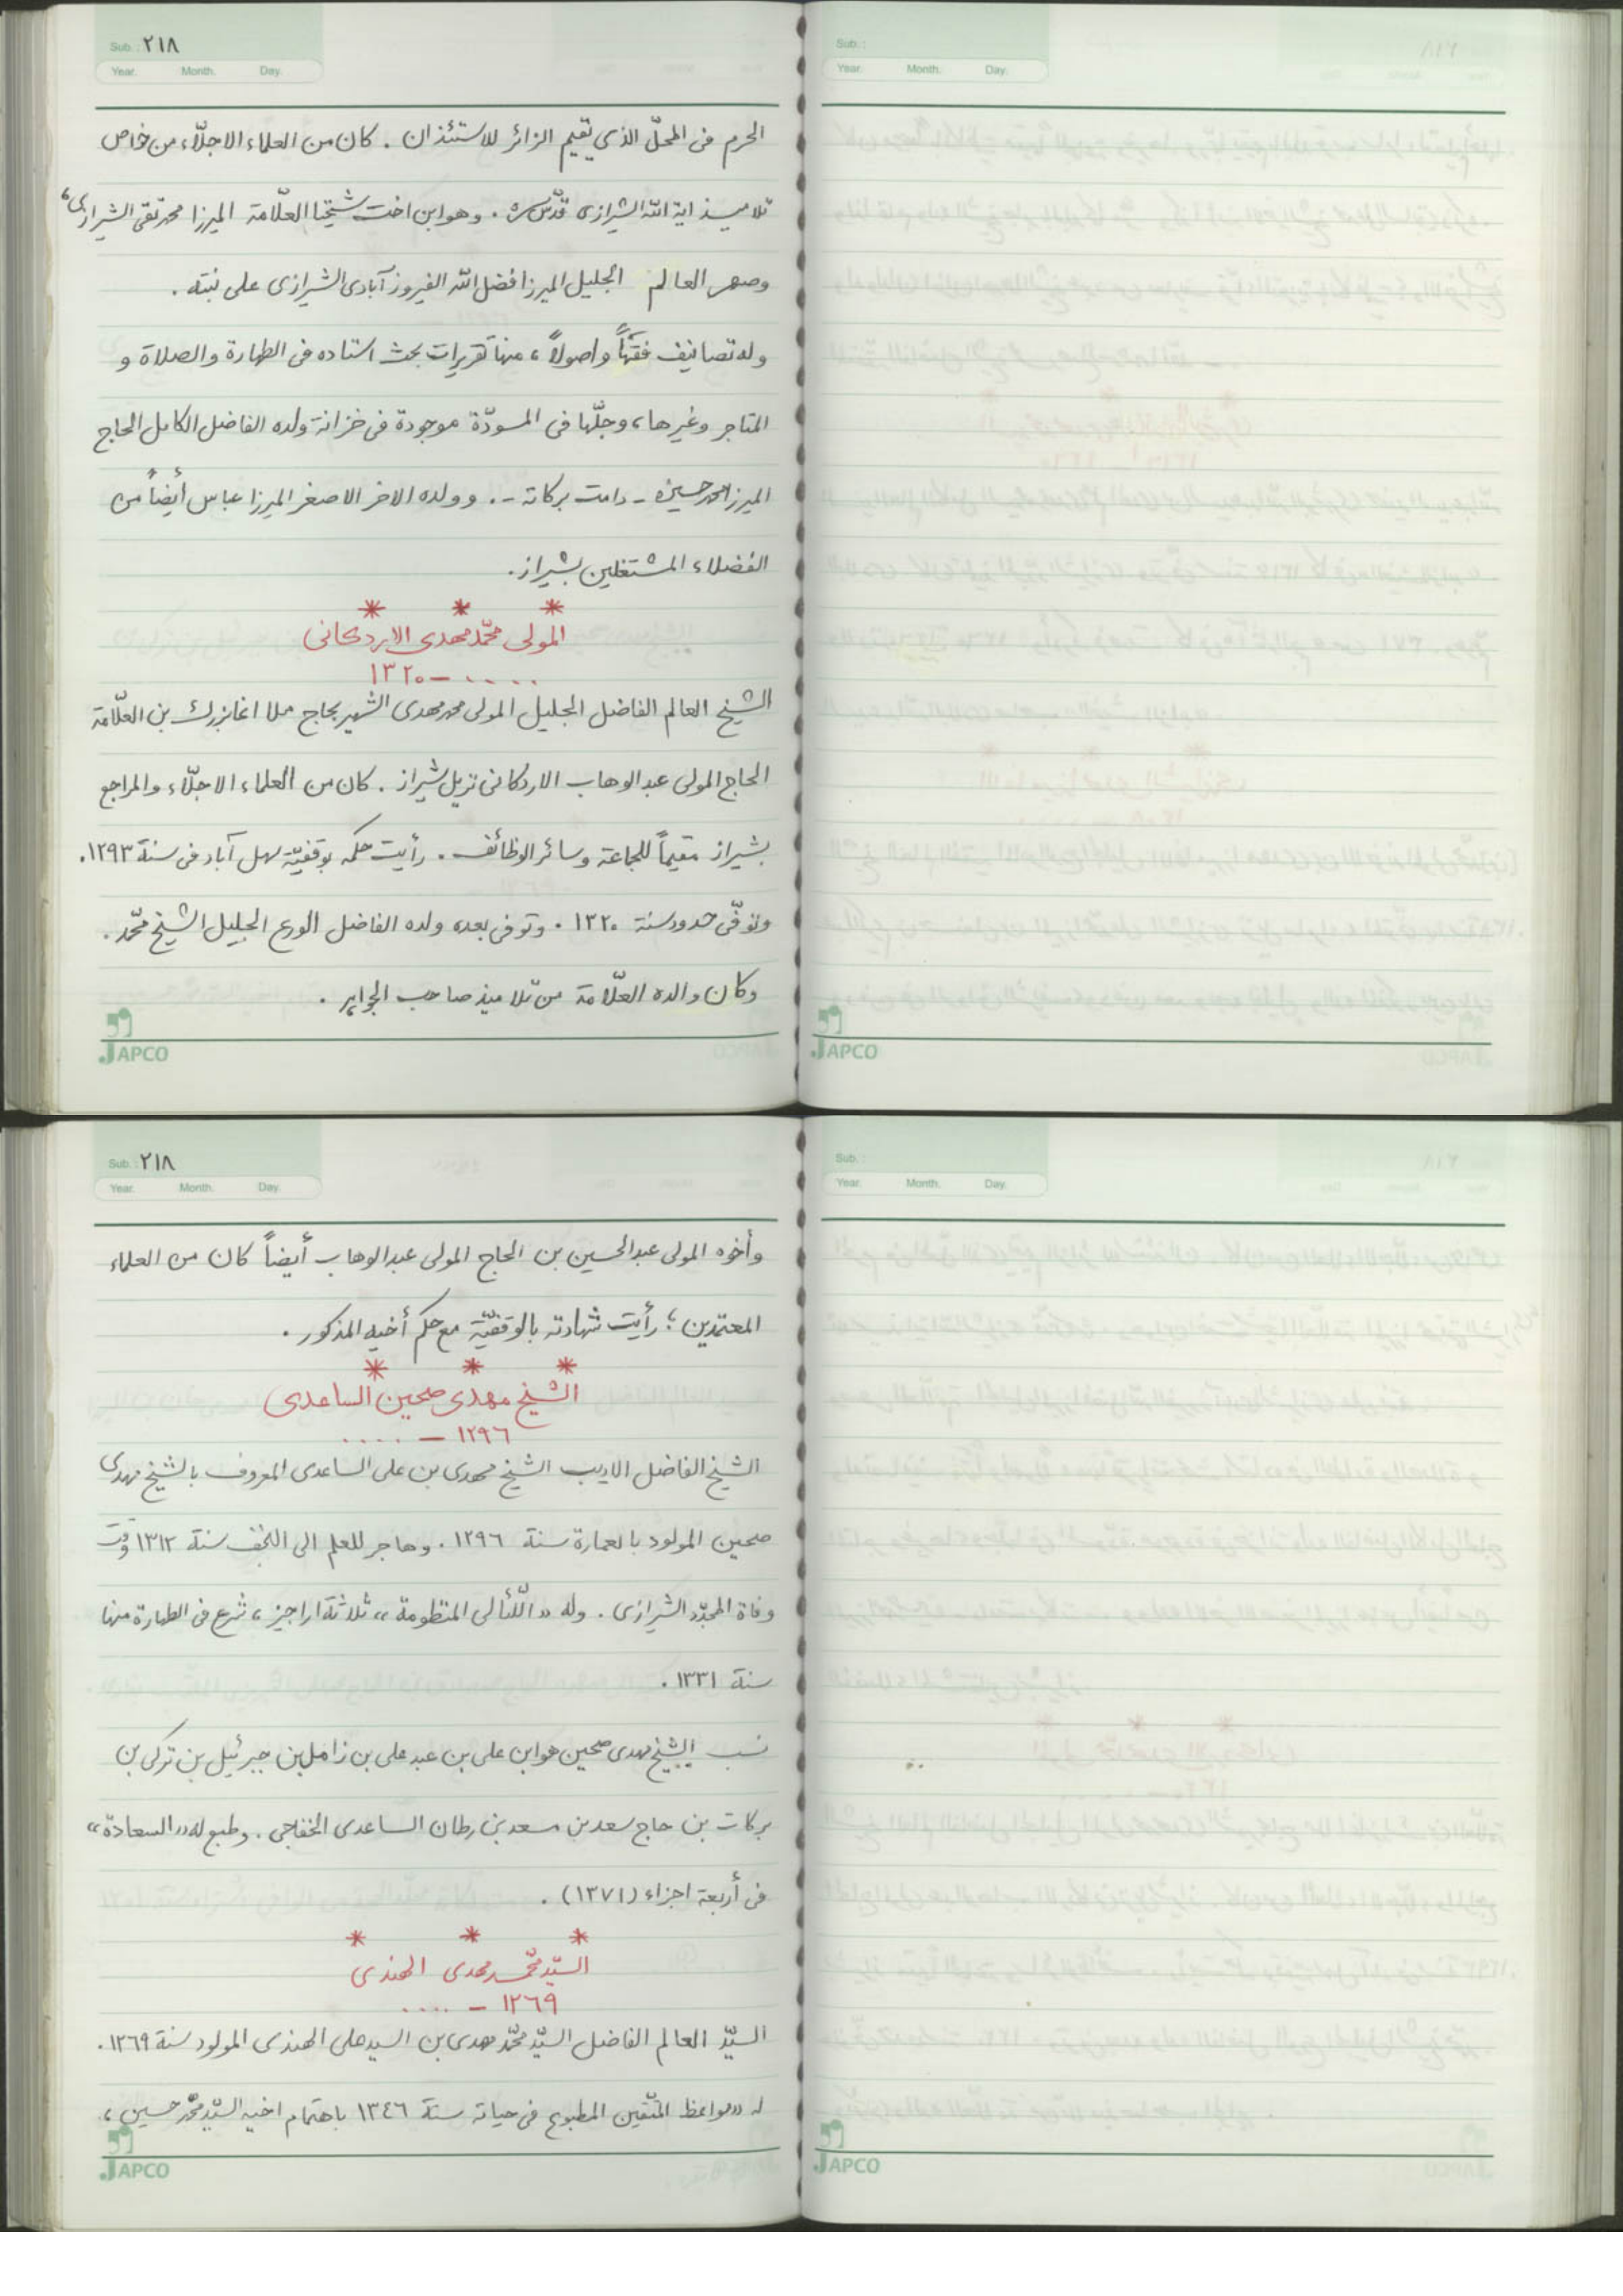 Sub.: ٢١٨
Year. Month. Day.
الحرم فى المحلّ الذى يقيم الزائر للاستئذان . كان من العلماء الاجلّاء من خواص
تلاميذ اية اللّه الشيرازى قدّس سرّه . وهو ابن اخت شيخنا العلّامة الميرزا محمد تقى الشيرازى،
وصهر العالم الجليل الميرزا فضل اللّه الفيروزآبادى الشيرازى على بنته .
وله تصانيف فقهاً واصولاً، منها تقريرات بحث استاده فى الطهارة والصلاة و
المتاجر وغيرها، وجلّها فى المسودّة موجودة فى خزانة ولده الفاضل الكامل الحاج
الميرزا محمد حسين - دامت بركاته - . وولده الاخر الاصغر الميرزا عباس أيضاً من
الفضلاء المشتغلين بشيراز.
* * *
المولى محمّد مهدى الاردكانى
.... – ١٣٢٠
الشيخ العالم الفاضل الجليل المولى محمد مهدى الشهير بحاج ملا اغا بزرك بن العلّامة
الحاج المولى عبد الوهاب الاردكانى نزيل شيراز . كان من العلماء الاجلّاء والمراجع
بشيراز مقيماً للجماعة وسائر الوظائف . رأيت حكمه بوقفيّة سهل آباد فى سنة ١٢٩٣.
وتوفّى حدود سنة ١٣٢٠ . وتوفى بعده ولده الفاضل الورع الجليل الشيخ محمّد .
وكان والده العلّامة من تلاميذ صاحب الجواهر .
JAPCO
Sub.:
Year. Month. Day.
JAPCO
Sub.: ٢١٨
Year. Month. Day.
وأخوه المولى عبد الحسين بن الحاج المولى عبد الوهاب أيضاً كان من العلماء
المعتمدين؛ رأيت شهادته بالوقفيّة مع حكم أخيه المذكور .
* * *
الشيخ مهدى صحين الساعدى
١٢٩٦ – ....
الشيخ الفاضل الاديب الشيخ مهدى بن على الساعدى المعروف بالشيخ مهدى
صحين المولود بالعمارة سنة ١٢٩٦ . وهاجر للعلم الى النجف سنة ١٣١٢ وقت
وفاة المجدّد الشيرازى . وله «اللّئالى المنظومة»، ثلاثة اراجيز، شرع فى الطهارة منها
سنة ١٣٣١ .
نسب الشيخ مهدى صحين هو ابن على بن عبد على بن زامل بن جبرئيل بن تركى بن
بركات بن حاج سعد بن مسعد بن رطان الساعدى الخفاجى . وطبع له «السعادة»
فى أربعة اجزاء (١٣٧١) .
* * *
السيّد محمّد مهدى الهندى
١٢٦٩ – ....
السيّد العالم الفاضل السيّد محمّد مهدى بن السيد على الهندى المولود سنة ١٢٦٩ .
له «مواعظ المتّقين المطبوع فى حياته سنة ١٣٤٦ باهتمام اخيه السيّد محمّد حسين،
JAPCO
Sub.:
Year. Month. Day.
JAPCO